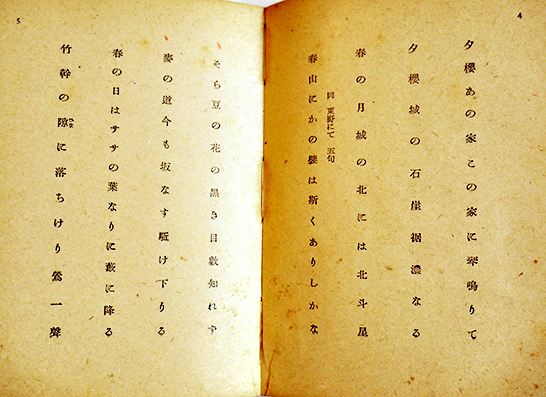 4
夕櫻あの家この家に琴鳴りて
夕櫻城の石崖裾濃なる
春の月城の北には北斗星
同 東野にて 五句
春山にかの襞は斯くありしかな
そら豆の花の黒き目數知れず
麥の道今も坂なす駈け下りる
春の日はササの葉なりに藪に降る
竹幹の隙に落ちけり鶯一聲
5